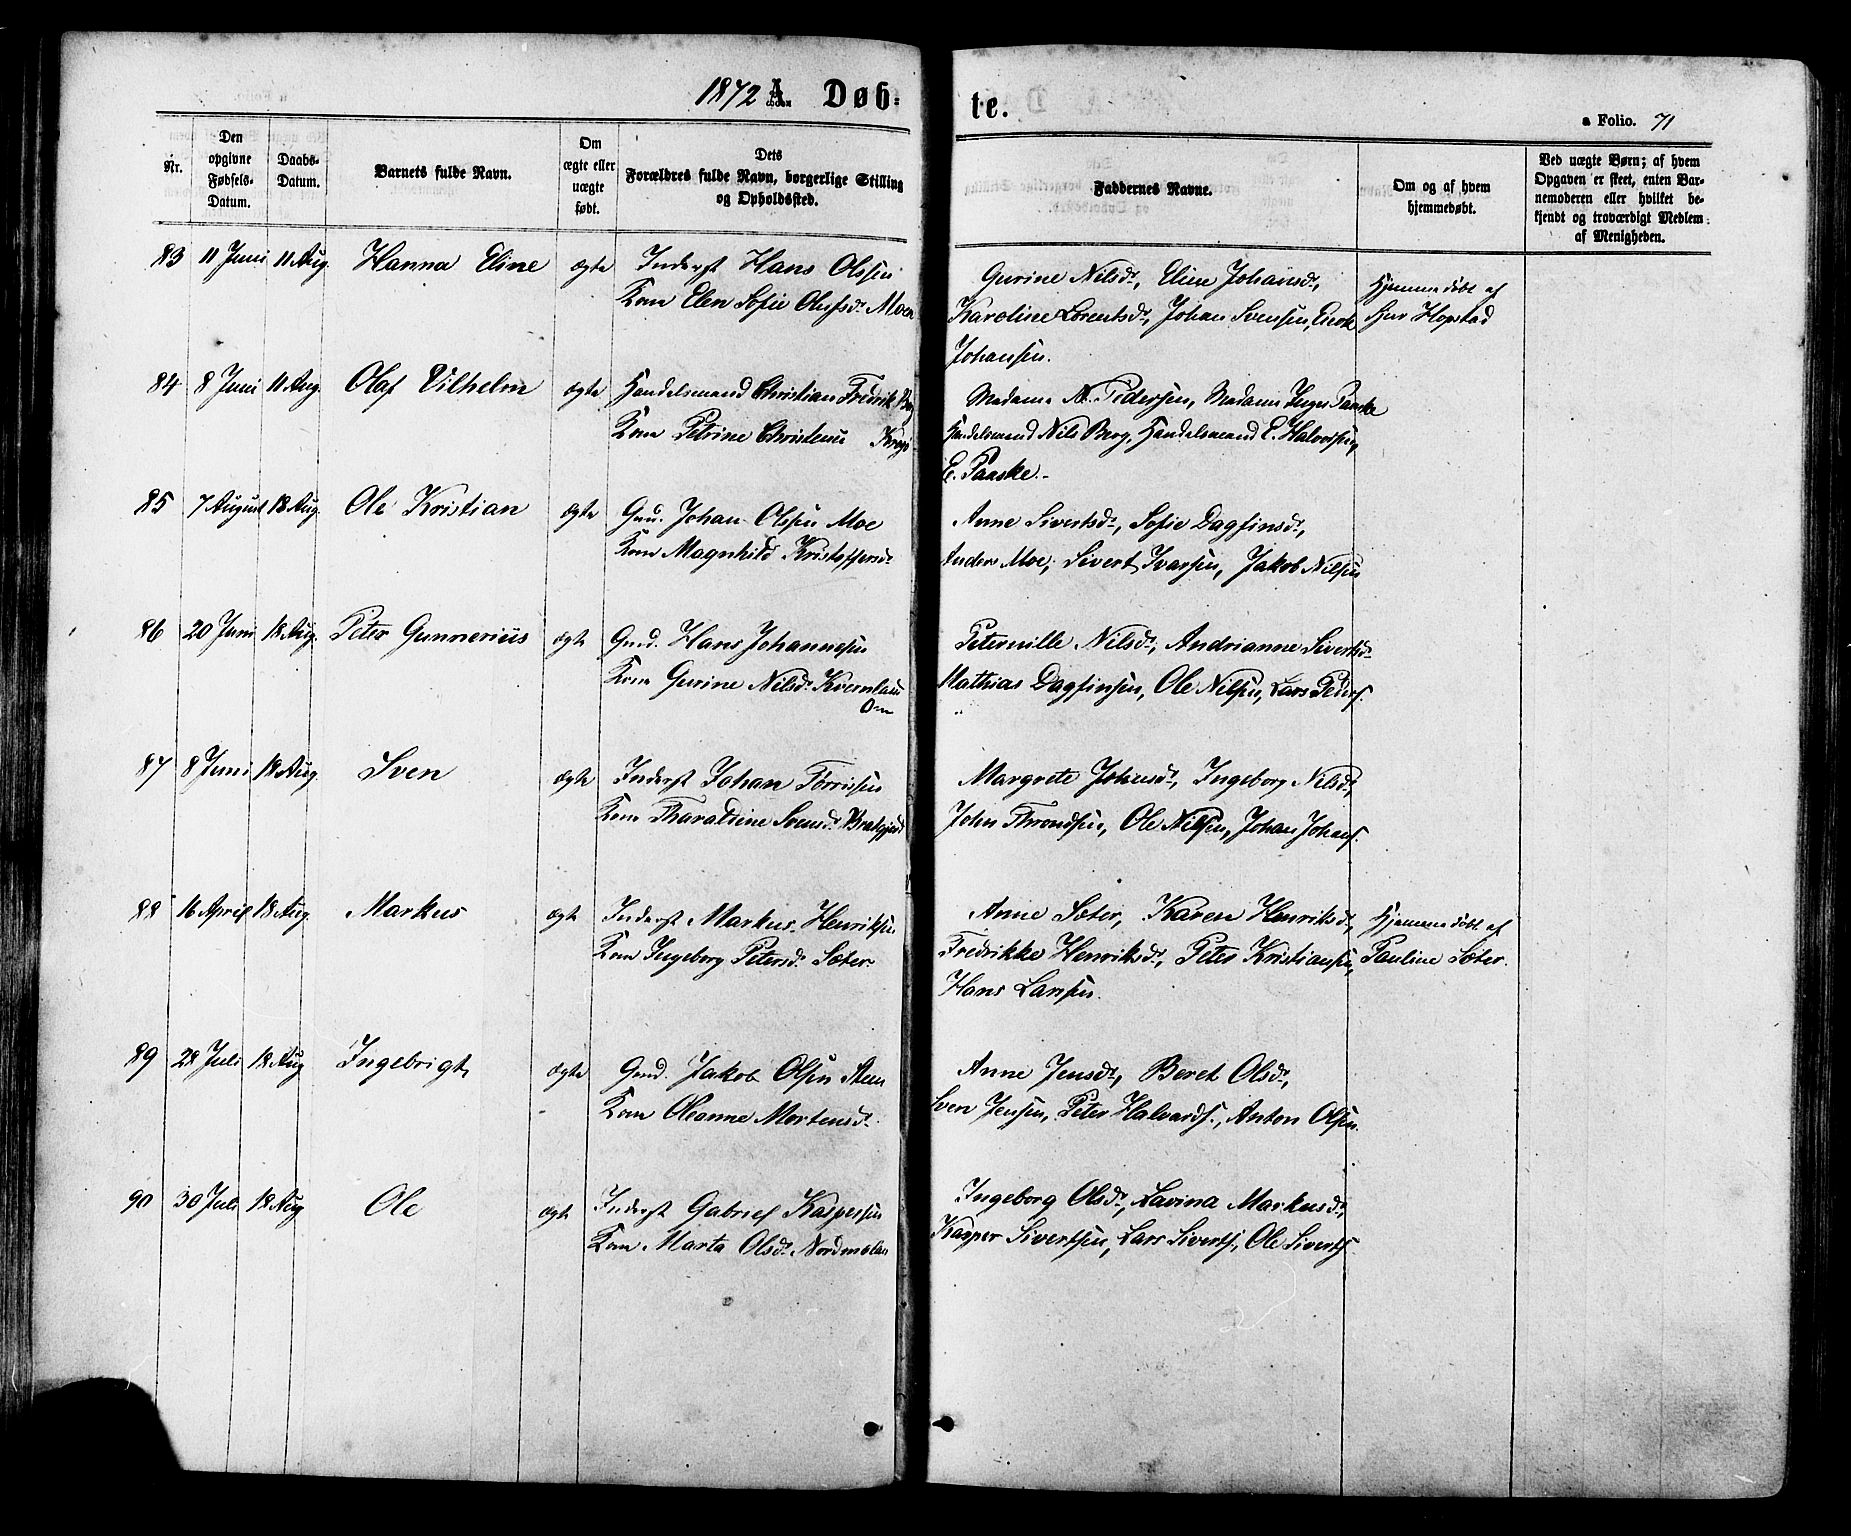 1872 A. Døb-te.
a Folio. 71
Nr.
Den opgivne Fødsels-Datum.
Daabs-Datum.
Barnets fulde Navn.
Om ægte eller uægte født.
Dets Forældres fulde Navn, borgerlige Stilling og Opholdssted.
Faddernes Navne.
Om og af hvem hjemmedøbt.
Ved uægte Børn; af hvem Opgaven er skeet, enten Barnemoderen eller hvilket bekjendt og troværdigt Medlem af Menigheden.
83 11 Juni 11 Aug. Hanna Eline ægte Inderst Hans Olssen
Kone Elen Sofie Olufsdr. Moen
Gurine Nilsdr, Eline Johansdr,
Karoline Lorentsdr, Johan Svensen, Enok
Johansen.
Hjemmedøbt af
Hopstad
84 8 Juni 11 Aug. Olaf Vilhelm ægte Handelsmand Christian Fredrik
Kone Petrine Christense
Madame A. Pedersen, Madame Inger Paaske
Handelsmand Nils Berg, Handelsmand E. Halvorsen,
E. Paaske.
85 7 August 18 Aug. Ole Kristian ægte Gm. Johan Olssen Moe
Kone Magnhild Kristoffersdr
Anne Sivertsdr, Sofie Dagfinsdr,
Anders Moe, Sivert Ivarsen, Jakob Nilsen
86 20 Juni 18 Aug. Peter Gunnerius ægte Gmd. Hans Johannesen
Kone Gurine Nilsdr
Peternille Nilsdr, Andrianne Sivertsdr
Mathias Dagfinsen, Ole Nilsen, Lars Peders.
87 8 Juni 18 Aug. Sven ægte Inderst Johan Torrissen
Kone Haraldine Svensdr
Margrete Johnsdr, Ingeborg Nilsdr,
John Throndsen, Ole Nilsen, Johan Johans.
88 16 April 18 Aug. Markus ægte Inderst Markus Henriksen
Kone Ingeborg Petersdr Sæter
Anne Sæter, Karen Henriksdr,
Fredrikke Henriksdr, Peter Kristiansen,
Hans Larsen.
Hjemmedøbt af
Pauline Sæter.
89 28 Juli 18 Aug Ingebrigt ægte Gmd. Jakob Olsen Steen
Kone Oleanne Mortensdr.
Anne Jensdr, Beret Olsdr,
Sven Jensen, Peter Halvards., Anton Olsen.
90 30 Juli 18 Aug Ole ægte Inderst Gabriel Kaspersen
Kone Marta Olsdr. Nordmelan
Ingeborg Olsdr, Lavina Markusdr,
Kasper Sivertsen, Lars Siverts., Ole Siverts.